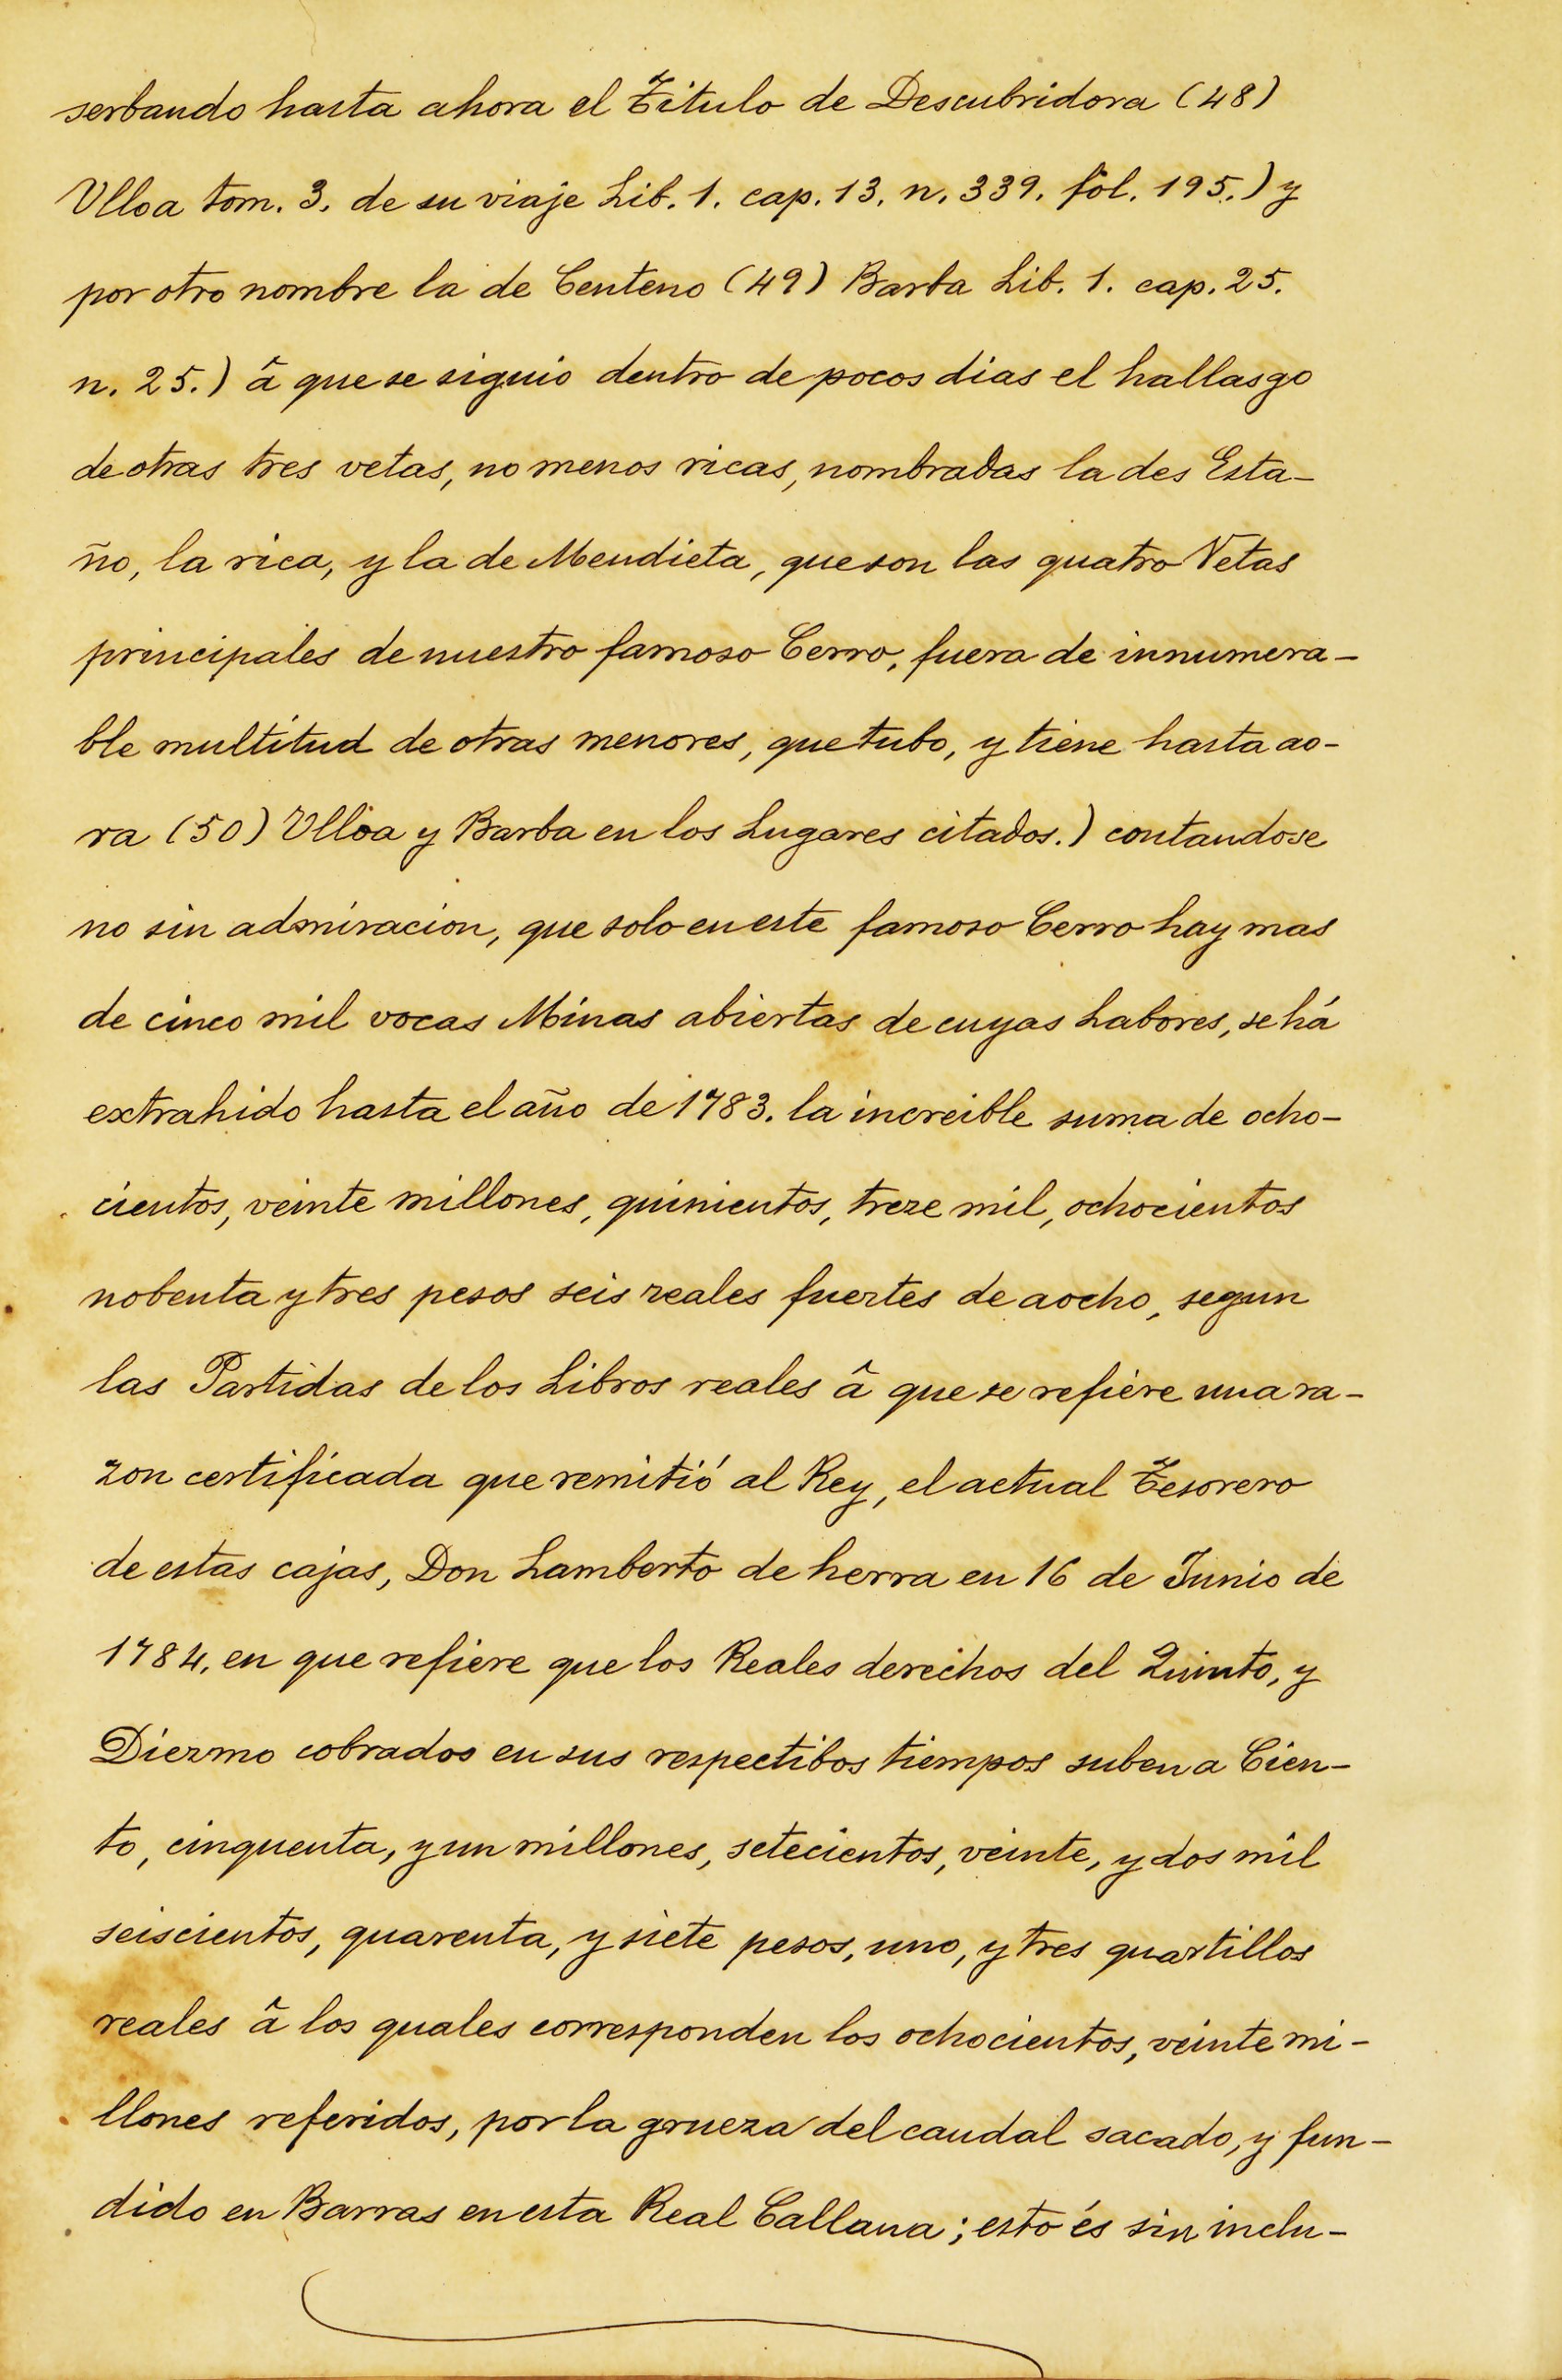 serbando hasta ahora el Titulo de Descubridora (48)
Ulloa tom. 3. de su viaje Lib. 1. cap. 13. n. 339. fol. 195.) y
por otro nombre la de Centeno (49) Barba Lib. 1. cap. 25.
n. 25.) â que se siguio dentro de pocos dias el hallasgo
de otras tres vetas, no menos ricas, nombradas la des Esta-
ño, la rica, y la de Mendieta, que son las quatro Vetas
principales de nuestro famoso Cerro, fuera de innumera-
ble multitud de otras menores, que tubo, y tiene hasta ao-
ra (50) Ulloa y Barba en los Lugares citados.) contandose
no sin admiracion, que solo en este famoso Cerro hay mas
de cinco mil vocas Minas abiertas de cuyas Labores, se há
extrahido hasta el año de 1783. la increible suma de ocho-
cientos, veinte millones, quinientos, treze mil, ochocientos
nobenta y tres pesos seis reales fuertes de a ocho, segun
las Partidas de los Libros reales â que se refiere una ra-
zon certificada que remitió al Rey, el actual Tesorero
de estas cajas, Don Lamberto de herra en 16 de Junio de
1784. en que refiere que los Reales derechos del Quinto, y
Diezmo cobrados en sus respectibos tiempos suben a Cien-
to, cinquenta, y un millones, setecientos, veinte, y dos mil
seiscientos, quarenta, y siete pesos, uno, y tres quartillos
reales â los quales corresponden los ochocientos, veinte mi-
llones referidos, por la grueza del caudal sacado, y fun-
dido en Barras en esta Real Callana; esto és sin inclu-